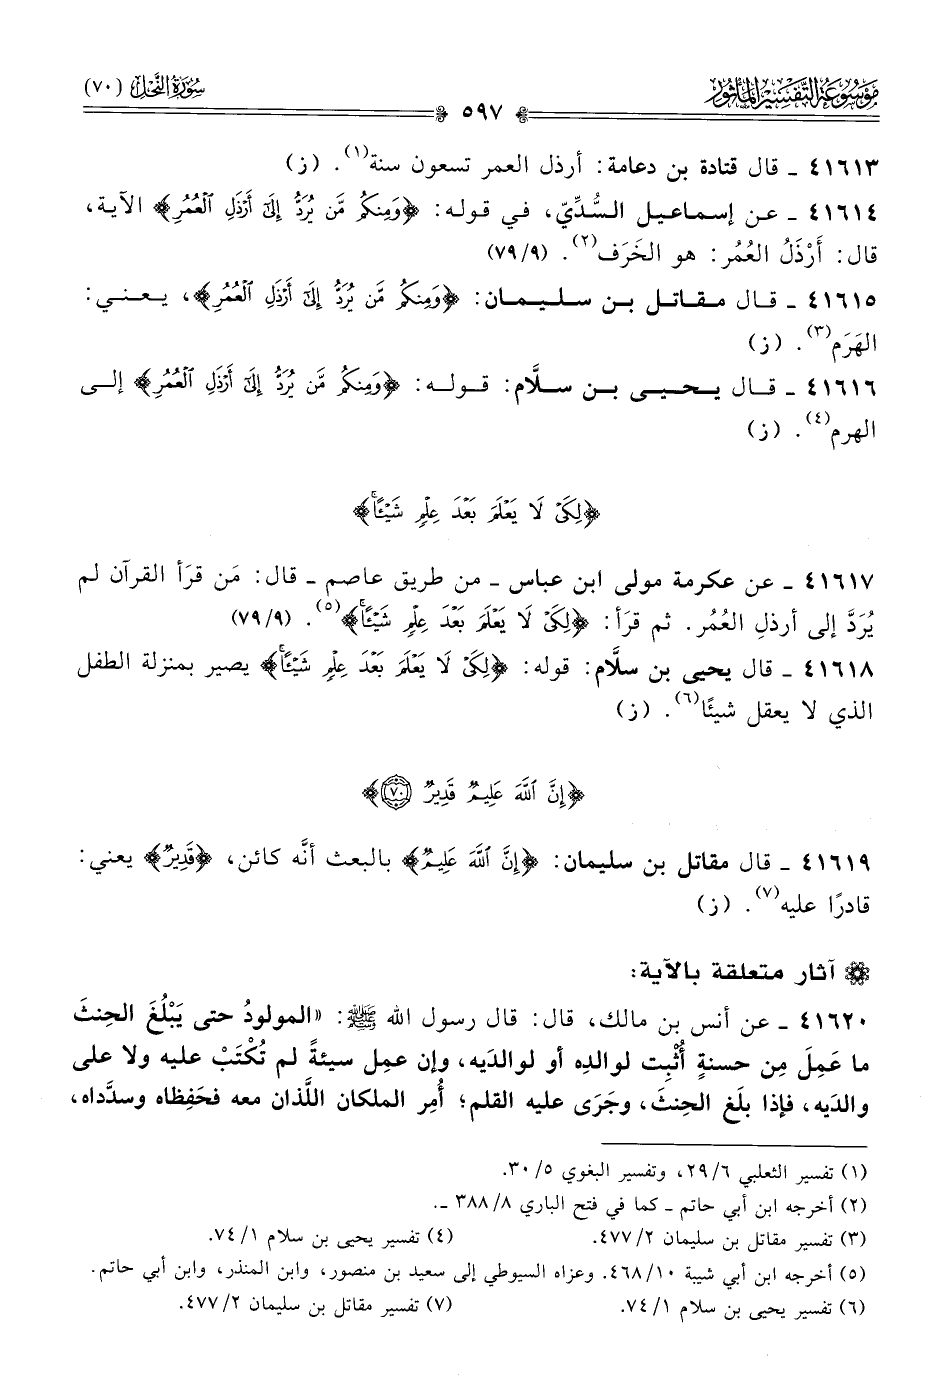 موسوعة التفسير المأثور
سورة النحل (٧٠)
٥٩٧
٤١٦١٣ ـ قال قتادة بن دعامة: أرذل العمر تسعون سنة(١). (ز)
٤١٦١٤ ـ عن إسماعيل السُّدِّيّ، في قوله: ﴿وَمِنكُم مَّن يُرَدُّ إِلَىٰٓ أَرْذَلِ ٱلْعُمُرِ﴾ الآية،
قال: أَرْذَلُ العُمُر: هو الخَرَف(٢). (٧٩/٩)
٤١٦١٥ ـ قال مقاتل بن سليمان: ﴿وَمِنكُم مَّن يُرَدُّ إِلَىٰٓ أَرْذَلِ ٱلْعُمُرِ﴾، يعني:
الهَرَم(٣). (ز)
٤١٦١٦ ـ قال يحيى بن سلَّام: قوله: ﴿وَمِنكُم مَّن يُرَدُّ إِلَىٰٓ أَرْذَلِ ٱلْعُمُرِ﴾ إلى
الهرم(٤). (ز)
﴿لِكَىْ لَا يَعْلَمَ بَعْدَ عِلْمٍ شَيْـًٔا ۚ﴾
٤١٦١٧ ـ عن عكرمة مولى ابن عباس ـ من طريق عاصم ـ قال: مَن قرَأ القرآن لم
يُرَدَّ إلى أرذلِ العُمُر. ثم قرَأ: ﴿لِكَىْ لَا يَعْلَمَ بَعْدَ عِلْمٍ شَيْـًٔا ۚ﴾(٥). (٧٩/٩)
٤١٦١٨ ـ قال يحيى بن سلَّام: قوله: ﴿لِكَىْ لَا يَعْلَمَ بَعْدَ عِلْمٍ شَيْـًٔا ۚ﴾ يصير بمنزلة الطفل
الذي لا يعقل شيئًا(٦). (ز)
﴿إِنَّ ٱللَّهَ عَلِيمٌ قَدِيرٌ ٧٠﴾
٤١٦١٩ ـ قال مقاتل بن سليمان: ﴿إِنَّ ٱللَّهَ عَلِيمٌ﴾ بالبعث أنَّه كائن، ﴿قَدِيرٌ﴾ يعني:
قادرًا عليه(٧). (ز)
آثار متعلقة بالآية:
٤١٦٢٠ ـ عن أنس بن مالك، قال: قال رسول الله ﷺ: «المولودُ حتى يَبْلُغَ الحِنثَ
ما عَمِلَ مِن حسنةٍ أُثْبِت لوالدِه أو لوالدَيه، وإن عمِل سيئةً لم تُكْتَبْ عليه ولا على
والدَيه، فإذا بلَغ الحِنثَ، وجَرَى عليه القلم؛ أُمِر الملكان اللَّذان معه فحَفِظاه وسدَّداه،
(١) تفسير الثعلبي ٢٩/٦، وتفسير البغوي ٣٠/٥.
(٢) أخرجه ابن أبي حاتم ـ كما في فتح الباري ٣٨٨/٨ ـ.
(٣) تفسير مقاتل بن سليمان ٤٧٧/٢. (٤) تفسير يحيى بن سلام ٧٤/١.
(٥) أخرجه ابن أبي شيبة ٤٦٨/١٠. وعزاه السيوطي إلى سعيد بن منصور، وابن المنذر، وابن أبي حاتم.
(٦) تفسير يحيى بن سلام ٧٤/١. (٧) تفسير مقاتل بن سليمان ٤٧٧/٢.